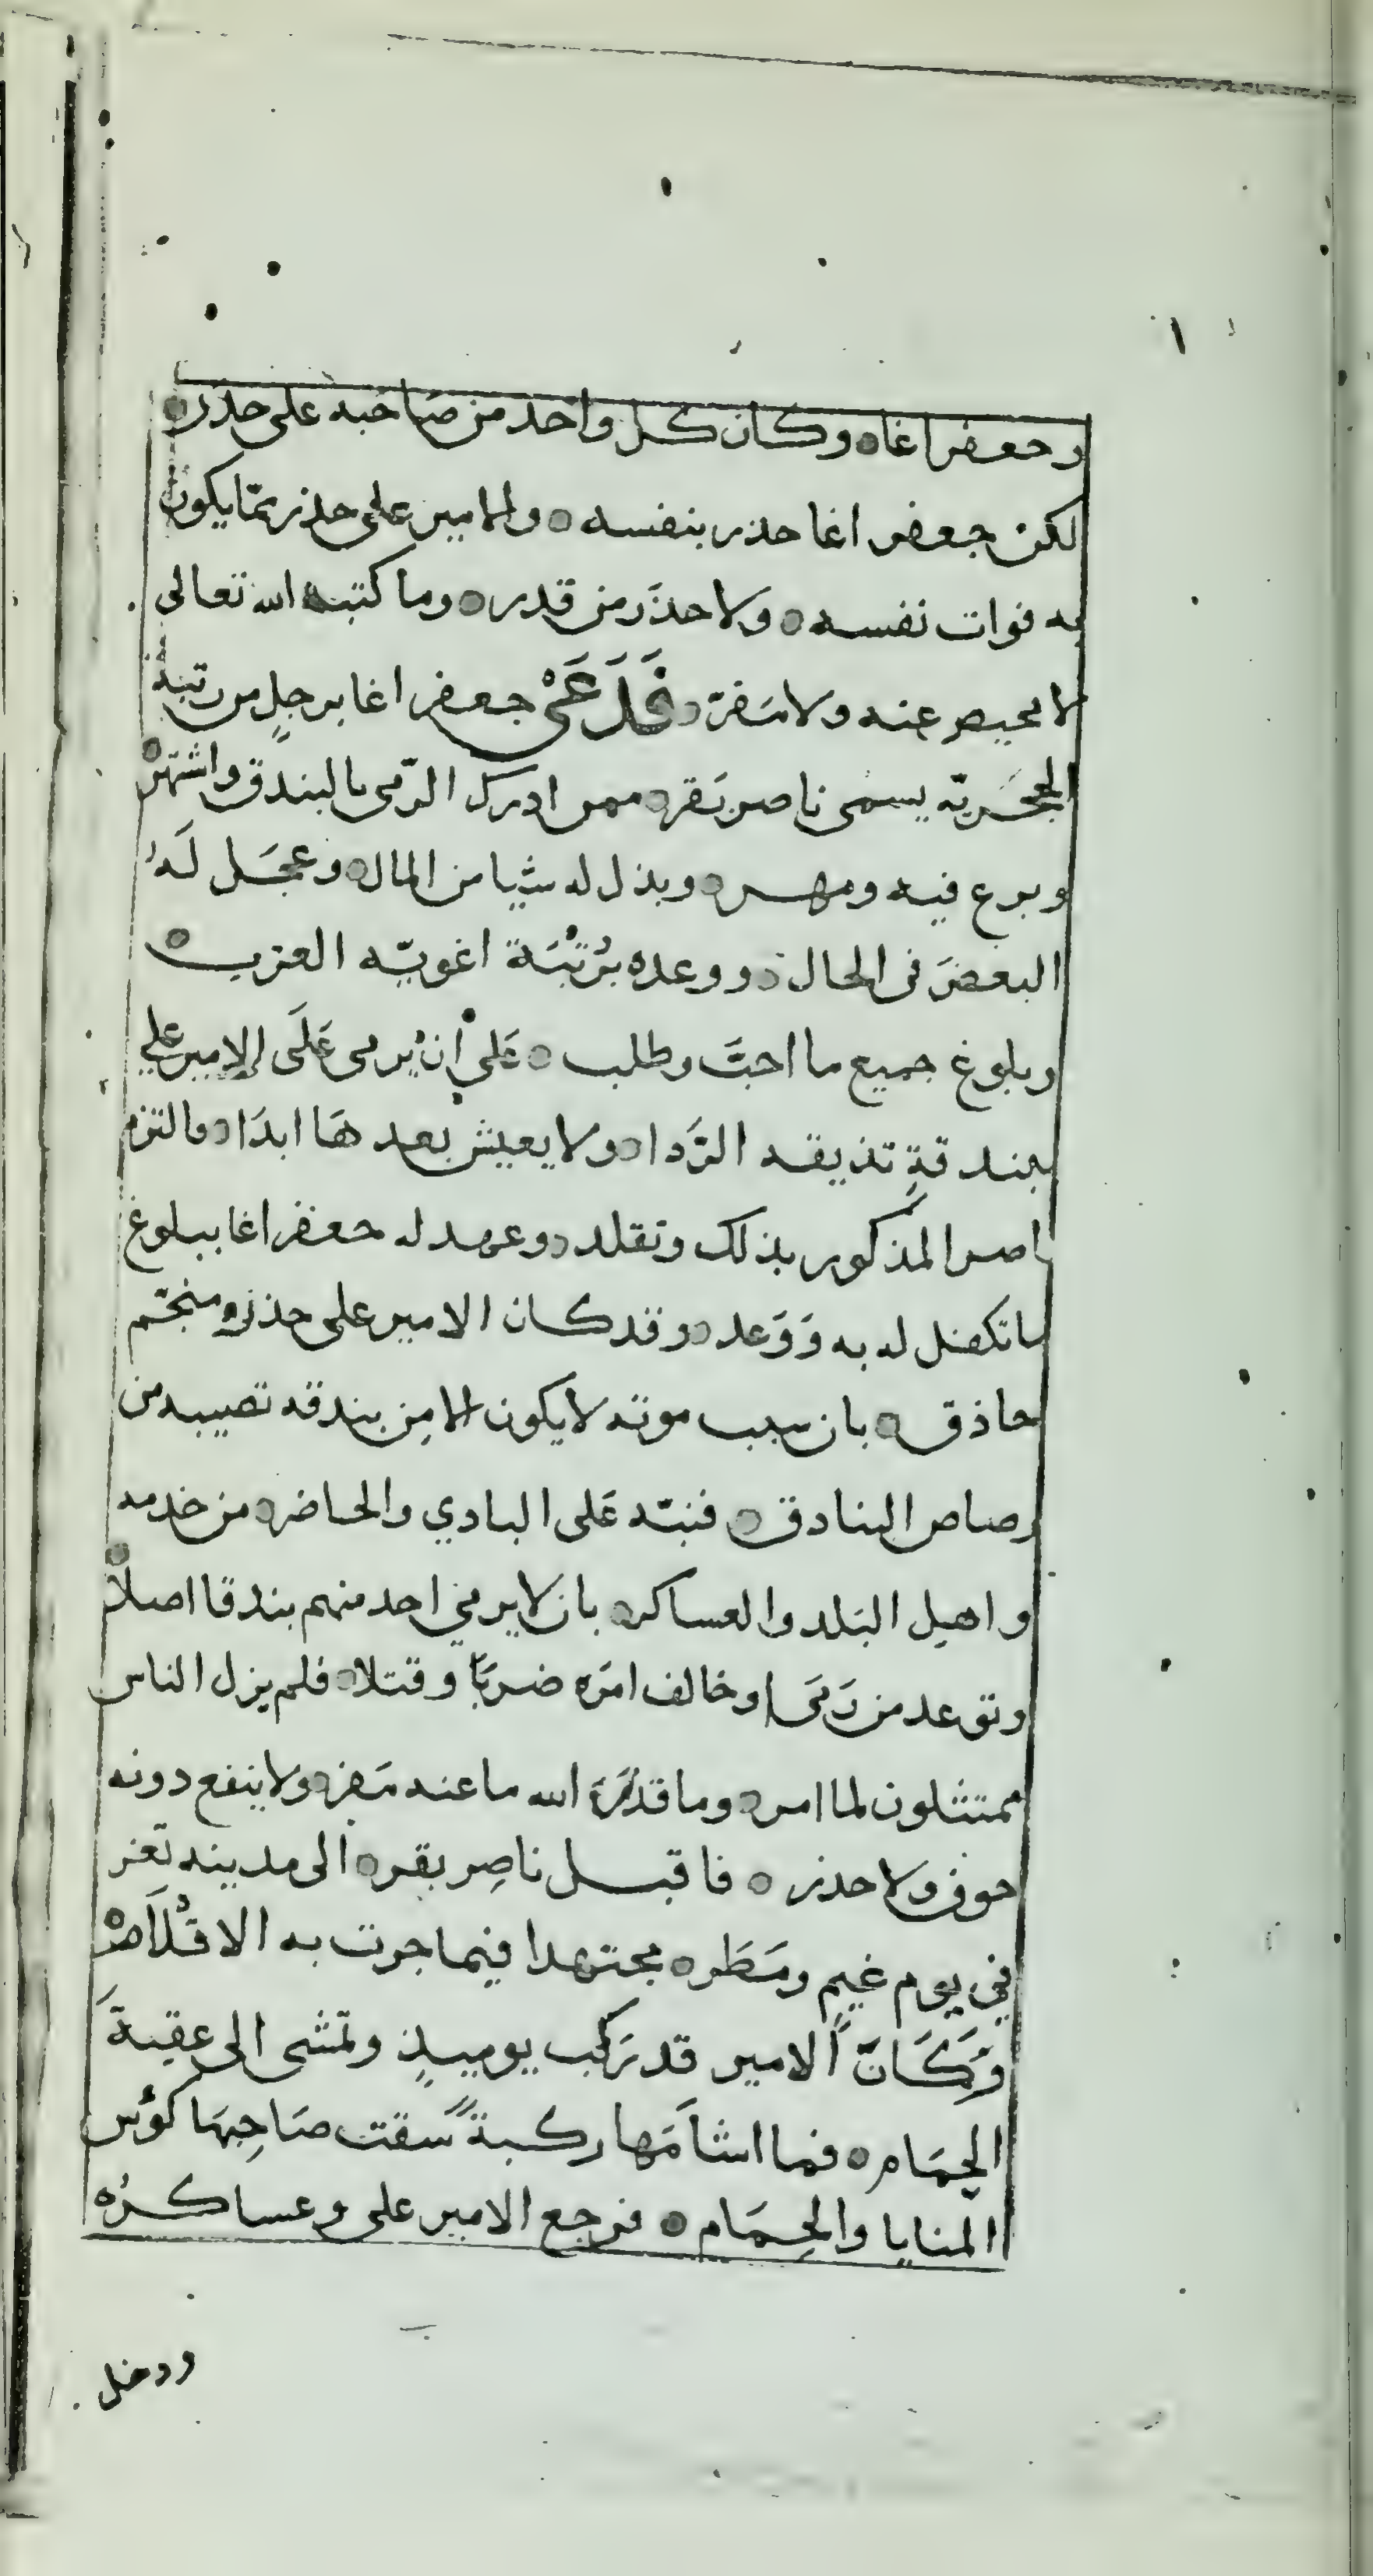 وجعفر اغا ٥ وكان كل واحد من صَاحبه على حذر ٥
لكن جعفر اغا حذر بنفسه ٥ والامير على حذر بمّا يكون
به فوات نفسه ٥ ولا حذَر من قدر ٥ وما كتبه الله تعالى
لا محيص عنه ولا مَفرّ ٥ جعفر اغا برجلٍ من رتبة
يسمى ناصر بَقر ٥ ممن ادرك الرّمى بالبندق واشتهر ٥
وبرع فيه ومهر ٥ وبذل له شيا من المال ٥ وعجَل لَهُ
البعضَ فى الحال ٥ ووعده برُتْبَة اغويّه العزب ٥
وبلوغ جميع ما احبّ وطلب ٥ عَلى أن يرمى عَلَى الامير علي
ببندقةٍ تذيقه الرَّدا ٥ ولا يعيش بعدهَا ابدَا ٥ فالتزم
ناصر المذكور بذلك وتقلد ٥ وعهد له جعفر اغا ببلوغ
ما تكفل له به وَوَعد ٥ وقد كان الامير على حذره منجّم
حاذق ٥ بان سبب موته لا يكون الا مِن بندقه تصيبه من
رصاص البنادق ٥ فنبّه عَلى البادي والحاضر ٥ من خدمه
واهل البَلد والعساكر ٥ بان لا يرمي احد منهم بندقا اصلاً ٥
وتوعد من رَمَى او خالف امَره ضربًا وقتلا ٥ فلم يزل الناس
ممتثلون لما امر ٥ وما قدّرَهُ الله ما عنه مَفر ٥ ولا ينفع دونه
خوف ولا حذر ٥ فاقبل ناصِر بقر ٥ الى مدينه تعز
في يوم غيمٍ ومَطَر ٥ مجتهدا فيما جرت به الاقْلَام ٥
وَكَانَ الامير قد رَكب يوميذٍ وتمشى الى عقبةَ
الحِمَام ٥ فما اشأمَها ركبةً سَقت صَاحِبهَا كؤس
المنايا والحِمَام ٥ فرجع الامير على وعساكرُه
ودخل